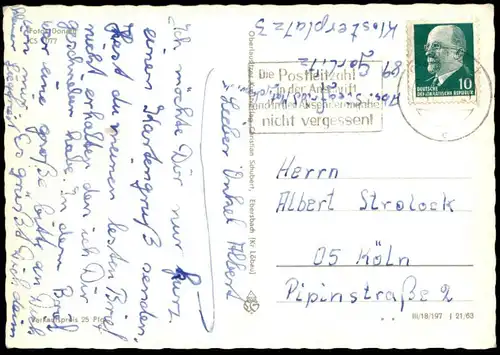 "Lieber Onkel Albert"
Ich möchte Dir nur kurz
einen Kartengruß senden.
Hast du meinen letzten Brief
nicht erhalten den ich Dir
geschrieben habe. In dem Brief
war eine große Bitte an Dich
Es grüßt Dich dein
Verkaufspreis 25 Pfg.
Klosterplatz 3
89 Görlitz
Abs.
Die Postleitzahl
in der Anschrift
und in der Absenderangabe
nicht vergessen!
DEUTSCHE
DEMOKRATISCHE REPUBLIK
10
Christian Schubert, Ebersbach (Kr. Löbau)
Herrn
Albert Strolock
05 Köln
Pipinstraße 2
III/18/197 J 21/63